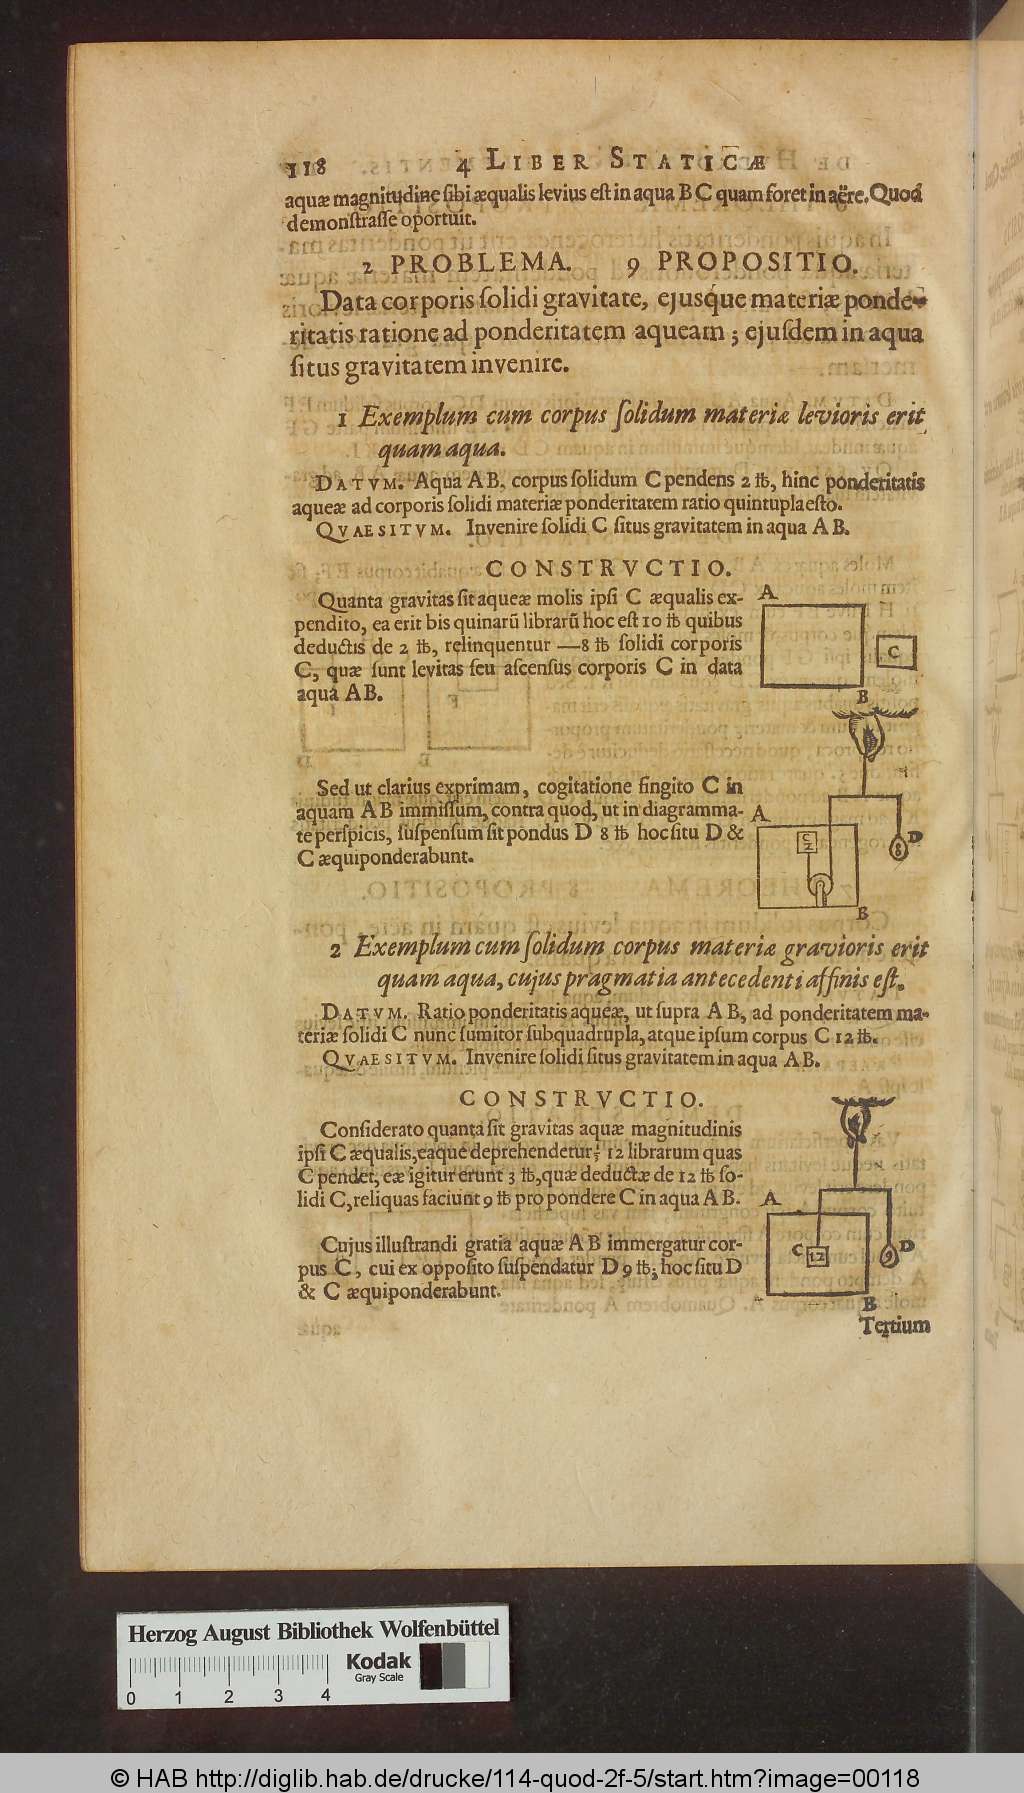 118 4 LIBER STATICÆ
aquæ magnitudine ſibi æqualis levius eſt in aqua B C quam foret in aëre. Quod
demonſtraſſe oportuit.
2 PROBLEMA. 9 PROPOSITIO.
Data corporis ſolidi gravitate, ejusque materiæ ponde-
ritatis ratione ad ponderitatem aqueam; ejuſdem in aqua
ſitus gravitatem invenire.
1 Exemplum cum corpus ſolidum materiæ levioris erit
quam aqua.
DATVM. Aqua A B, corpus ſolidum C pendens 2 ℔, hinc ponderitatis
aqueæ ad corporis ſolidi materiæ ponderitatem ratio quintupla eſto.
QVAESITVM. Invenire ſolidi C ſitus gravitatem in aqua A B.
CONSTRVCTIO.
Quanta gravitas ſit aqueæ molis ipſi C æqualis ex-
pendito, ea erit bis quinarū librarū hoc eſt 10 ℔ quibus
deductis de 2 ℔, relinquentur —8 ℔ ſolidi corporis
C, quæ ſunt levitas ſeu aſcenſus corporis C in data
aqua A B.
A
C
B
Sed ut clarius exprimam, cogitatione fingito C in
aquam A B immiſſum, contra quod, ut in diagramma-
te perſpicis, ſuſpenſum ſit pondus D 8 ℔ hoc ſitu D &
C æquiponderabunt.
A
C
2
D
8
B
2 Exemplum cum ſolidum corpus materiæ gravioris erit
quam aqua, cujus pragmatia antecedenti affinis eſt.
DATVM. Ratio ponderitatis aqueæ, ut ſupra A B, ad ponderitatem ma-
teriæ ſolidi C nunc ſumitor ſubquadrupla, atque ipſum corpus C 12 ℔.
QVAESITVM. Invenire ſolidi ſitus gravitatem in aqua A B.
CONSTRVCTIO.
Conſiderato quanta ſit gravitas aquæ magnitudinis
ipſi C æqualis, eaque deprehendetur 12 librarum quas
C pendet, eæ igitur erunt 3 ℔, quæ deductæ de 12 ℔ ſo-
lidi C, reliquas faciunt 9 ℔ pro pondere C in aqua A B.
Cujus illuſtrandi gratia aquæ A B immergatur cor-
pus C, cui ex oppoſito ſuſpendatur D 9 ℔; hoc ſitu D
& C æquiponderabunt.
A
C 12
D
9
B
Tertium
Herzog August Bibliothek Wolfenbüttel
Kodak
Gray Scale
0 1 2 3 4
© HAB http://diglib.hab.de/drucke/114-quod-2f-5/start.htm?image=00118